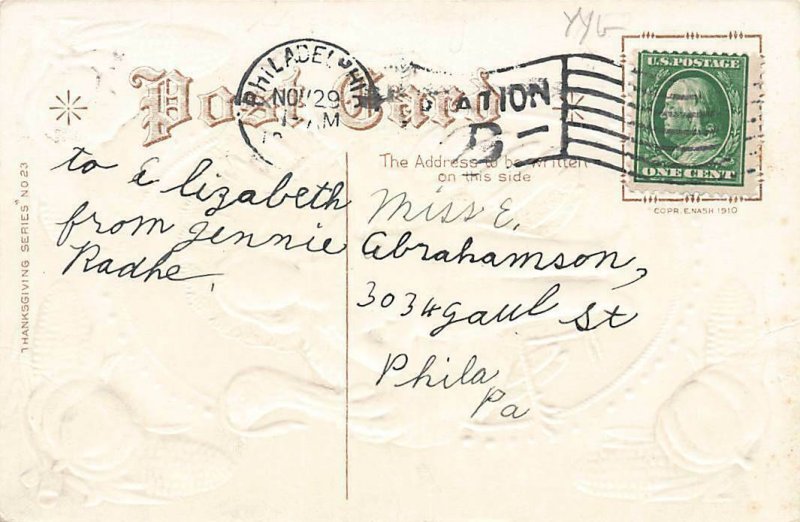 YYG
Post Card
PHILADELPHIA
NOV 29
AM
STATION
D
U.S. POSTAGE
ONE CENT
COPR. E. NASH 1910
The Address to be written
on this side
THANKSGIVING SERIES "NO. 23
to Elizabeth
from Jennie
Radhe.
Miss E.
Abrahamson,
3034 Gaul St
Phila
Pa